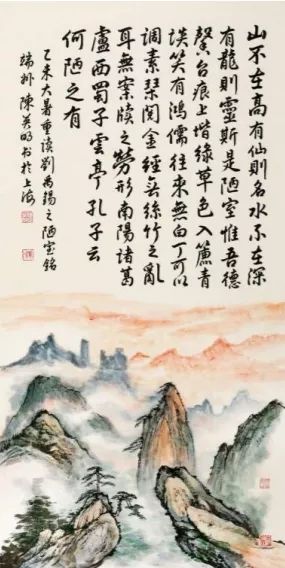 山不在高有仙則名水不在深
有龍則靈斯是陋室惟吾德
馨苔痕上堦綠草色入簾青
談笑有鴻儒往來無白丁可以
調素琴閱金經無絲竹之亂
耳無案牘之勞形南陽諸葛
廬西蜀子雲亭孔子云
何陋之有
乙未大暑重讀劉禹錫之陋室銘
端州陳英明書於上海